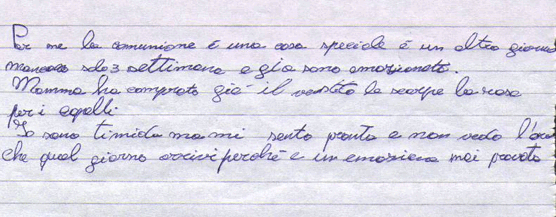 Per me la comunione è una cosa speciale è un altro giorno
mancano solo 3 settimana e gia sono emozionata.
Mamma ha comprato già il vestito le scarpe la rosa
per i capelli.
Io sono timida ma mi sento pronta e non vedo l'ora
che quel giorno arrivi perché è un emozione mai provata